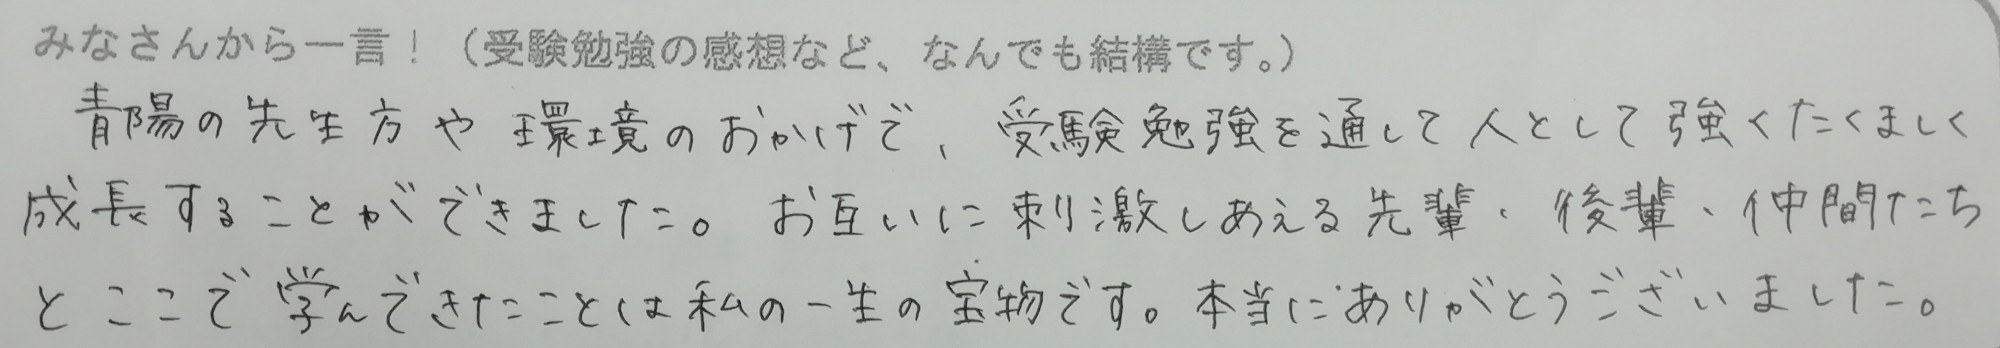 みなさんから一言！（受験勉強の感想など、なんでも結構です。）
青陽の先生方や環境のおかげで、受験勉強を通して人として強くたくましく
成長することができました。お互いに刺激しあえる先輩、後輩、仲間たち
とここで学んできたことは私の一生の宝物です。本当にありがとうございました。